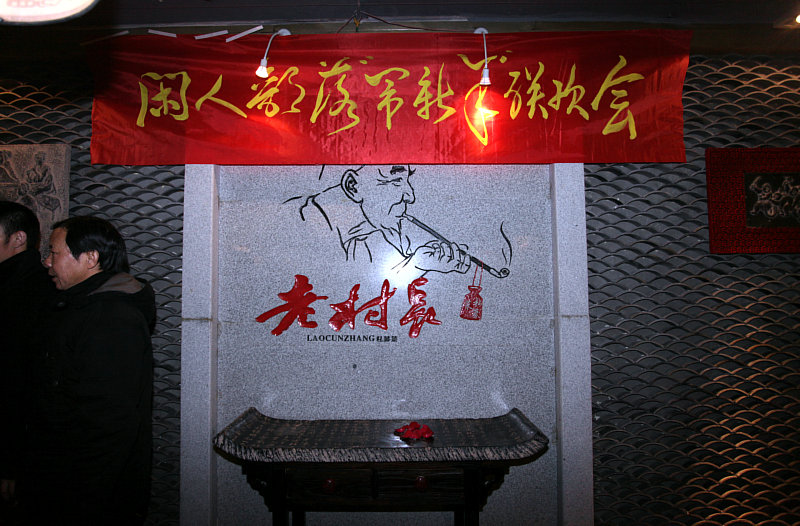 闲人部落闹新年联欢会
老村長
LAOCUNZHANG